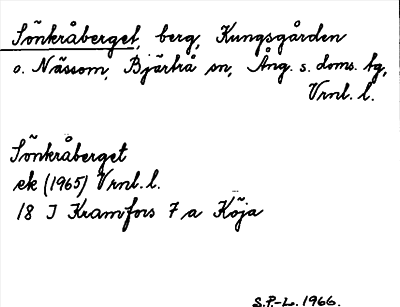 Sönkråberget, berg, Kungsgården
o. Nässom, Bjärtrå sn, Ång. s. doms. tg,
Vrnl. l.
Sönkråberget
ek (1965) Vrnl. l.
18 I Kramfors 7 a Köja
S.P.-L. 1966.